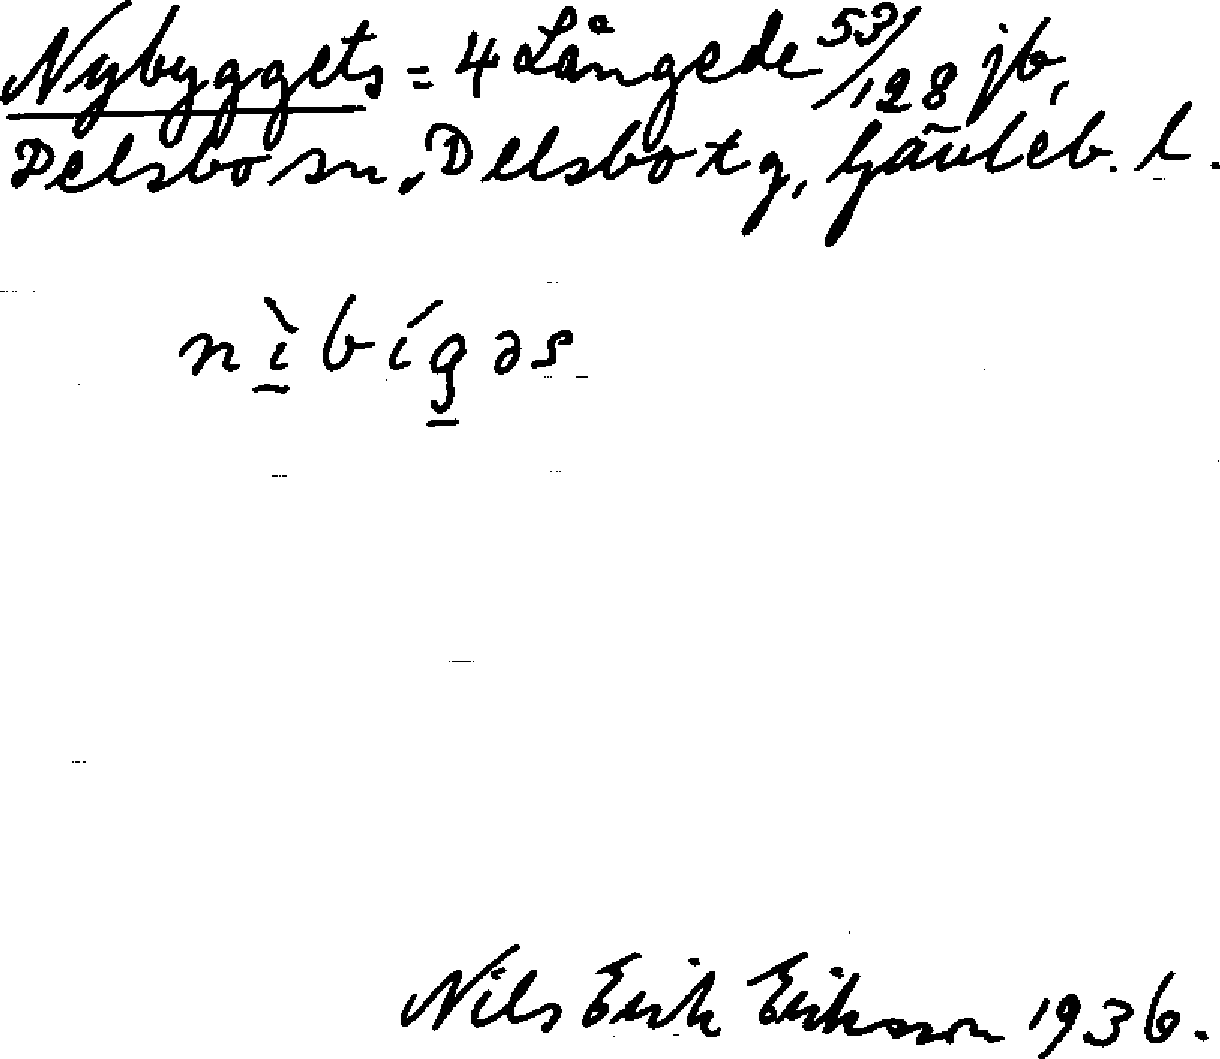 Nybyggets = 4 Långede 53/128 jb,
Delsbo sn, Delsbo tg, Gävleb. l.
nìbígəs
Nils Erik Eriksson 1936.